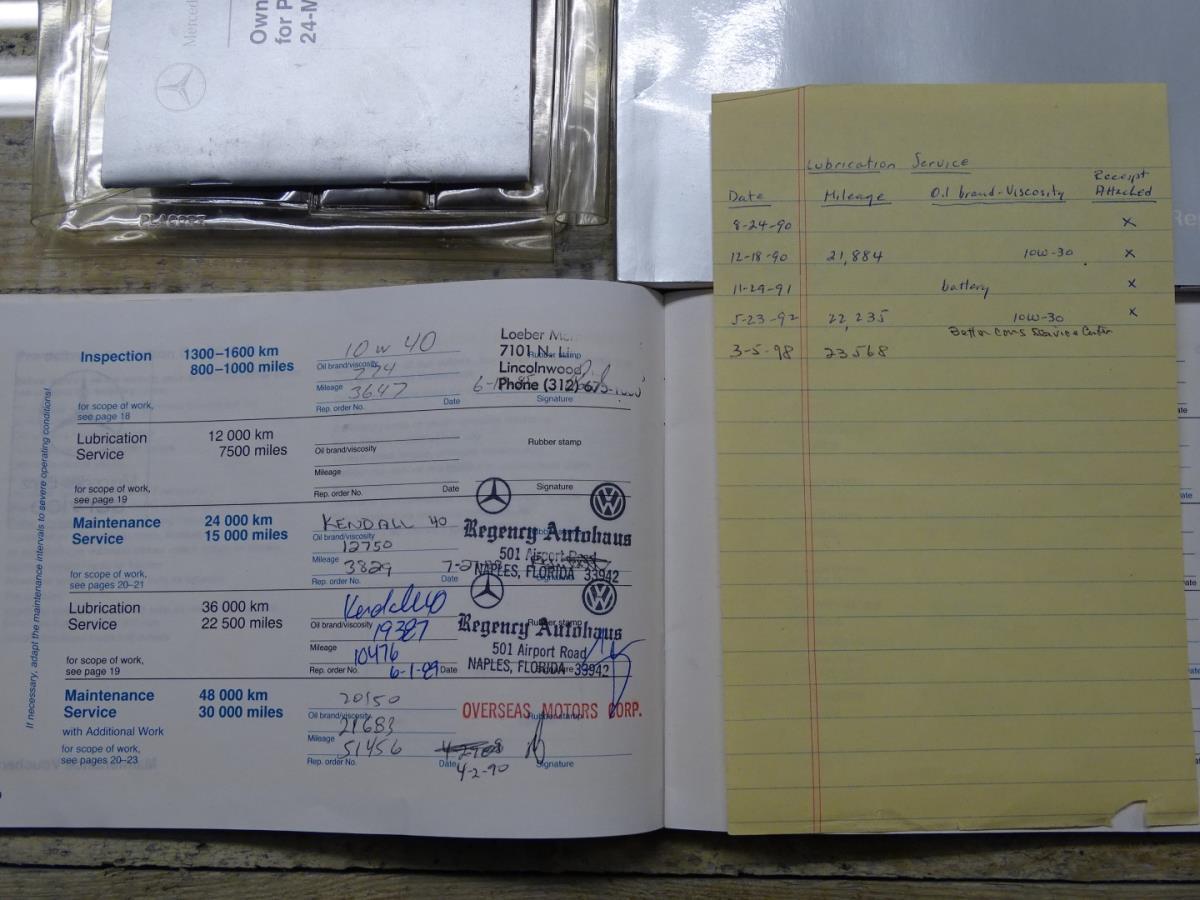 Mercedes
Own
for P
24-M
Inspection 1300–1600 km
800–1000 miles
10 W 40
Oil brand/viscosity
774
Mileage
3647
Rep. order No. Date
Loeber
7101 N. Lin
Lincolnwood
Phone (312) 675-
Rubber stamp
Signature
for scope of work,
see page 18
Lubrication 12 000 km
Service 7500 miles
Oil brand/viscosity
Mileage
Rep. order No. Date
Rubber stamp
Signature
for scope of work,
see page 19
Maintenance 24 000 km
Service 15 000 miles
KENDALL 40
Oil brand/viscosity
12750
Mileage
3829
Rep. order No. Date
Regency Autohaus
501 Airport Road
NAPLES, FLORIDA 33942
for scope of work,
see pages 20–21
Lubrication 36 000 km
Service 22 500 miles
Oil brand/viscosity
19387
Mileage
10476
Rep. order No. 6-1-89 Date
Rubber stamp
Regency Autohaus
501 Airport Road
NAPLES, FLORIDA 33942
for scope of work,
see page 19
Maintenance 48 000 km
Service 30 000 miles
with Additional Work
for scope of work,
see pages 20–23
20/50
Oil brand/viscosity
21683
Mileage
51456
Rep. order No. Date
4-2-90
OVERSEAS MOTORS CORP.
Rubber stamp
Signature
If necessary, adapt the maintenance intervals to severe operating conditions!
Lubrication Service
Date Mileage Oil brand-Viscosity Receipt Attached
8-24-90 x
12-18-90 21,884 10W-30 x
11-29-91 battery x
5-23-92 22,235 10W-30 x
Service Center
3-5-98 23568